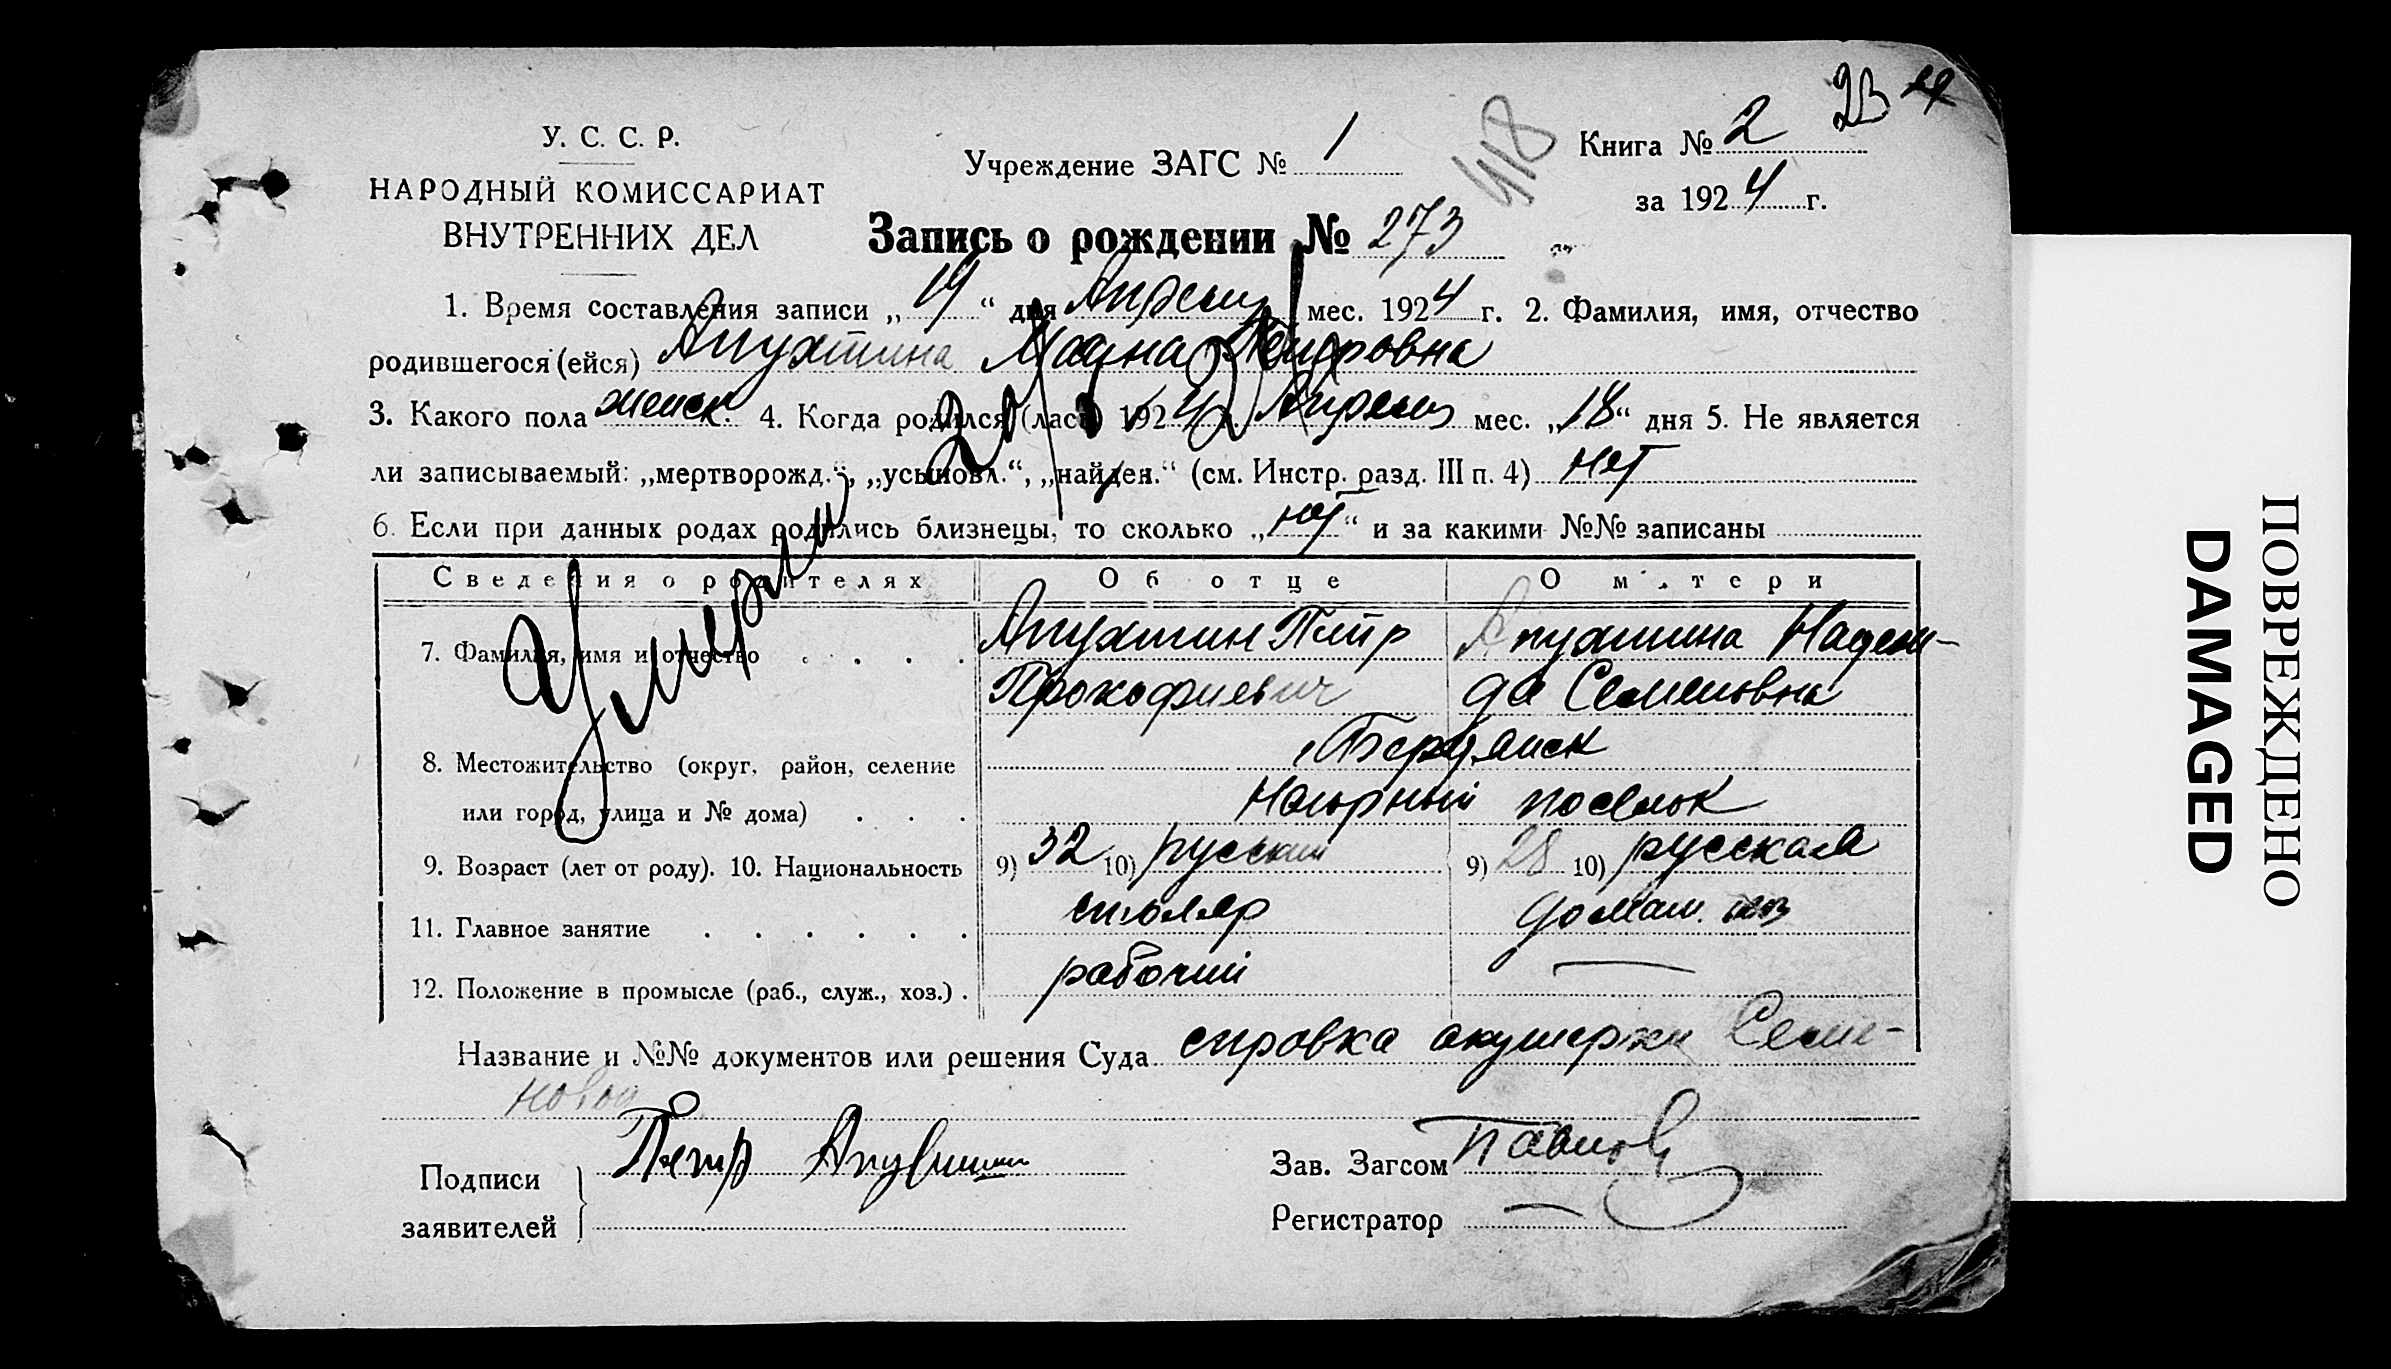 У. С. С. Р.
НАРОДНЫЙ КОМИССАРИАТ
ВНУТРЕННИХ ДЕЛ
Учреждение ЗАГС № 1
418
Книга № 2
23
за 1924 г.
Запись о рождении № 273
1. Время составления записи „19“ дня Апреля мес. 1924 г. 2. Фамилия, имя, отчество
родившегося (ейся) Апухтина Петровна
3. Какого пола женск. 4. Когда родился (лась) 1924 г. Апреля мес. „18“ дня 5. Не является
ли записываемый: „мертворожд.“, „усыновл.“, „найден.“ (см. Инстр. разд. III п. 4) нет
6. Если при данных родах родились близнецы, то сколько „нет“ и за какими №№ записаны
Умерла
Сведения о родителях Об отце О матери
7. Фамилия, имя и отчество . . . . Апухтин Петр Апухтина Надеж-
Прокофиевич да Семеновна
8. Местожительство (округ, район, селение г Бердянск
или город, улица и № дома) . . . Нагорный поселок
9. Возраст (лет от роду). 10. Национальность 9) 32 10) русский 9) 28 10) русская
11. Главное занятие . . . . . . столяр домаш. хоз
12. Положение в промысле (раб., служ., хоз.) . рабочий —
Название и №№ документов или решения Суда справка акушерки Семе-
новой
Подписи заявителей Петр
Зав. Загсом Павлов
Регистратор —
ПОВРЕЖДЕНО
DAMAGED